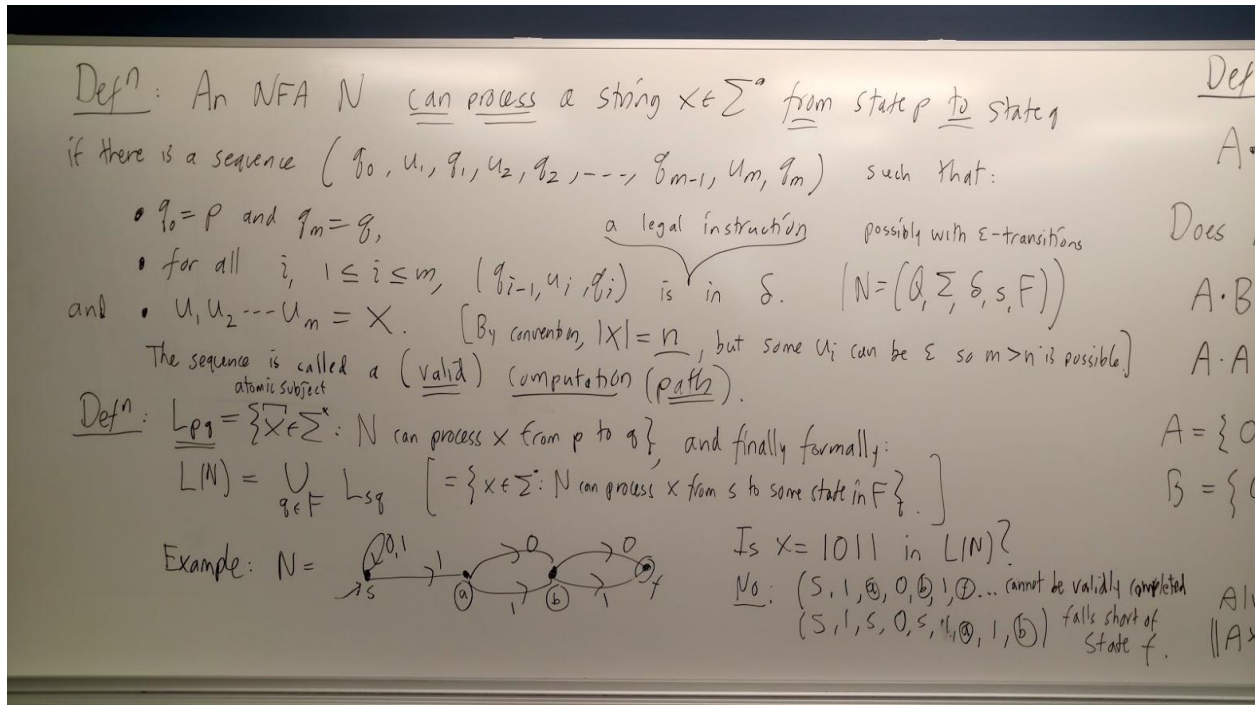 Defⁿ: An NFA N can process a string x ∈ Σ* from state p to state q
if there is a sequence (q₀, u₁, q₁, u₂, q₂, ---, qₘ₋₁, uₘ, qₘ) such that:
• q₀ = p and qₘ = q,
a legal instruction possibly with ε-transitions
• for all i, 1 ≤ i ≤ m, (qᵢ₋₁, uᵢ, qᵢ) is in δ. (N = (Q, Σ, δ, s, F))
and • u₁ u₂ --- uₘ = X. [By convention, |X| = n, but some uᵢ can be ε so m > n is possible.]
The sequence is called a (valid) computation (path).
atomic subject
Defⁿ: L_pq = {x ∈ Σ*: N can process x from p to q}, and finally formally:
L(N) = ∪_{q∈F} L_sq [= {x ∈ Σ*: N can process x from s to some state in F}.]
Example: N =
0,1 1 0 0
s a 1 b 1 f
Is x = 1011 in L(N)?
No: (S, 1, a, 0, b, 1, f... cannot be validly completed
(S, 1, S, 0, S, 1, a, 1, b) falls short of
state f.
Def
A·
Does
A·B
A·A
A = {0
B = {
Al
||A×